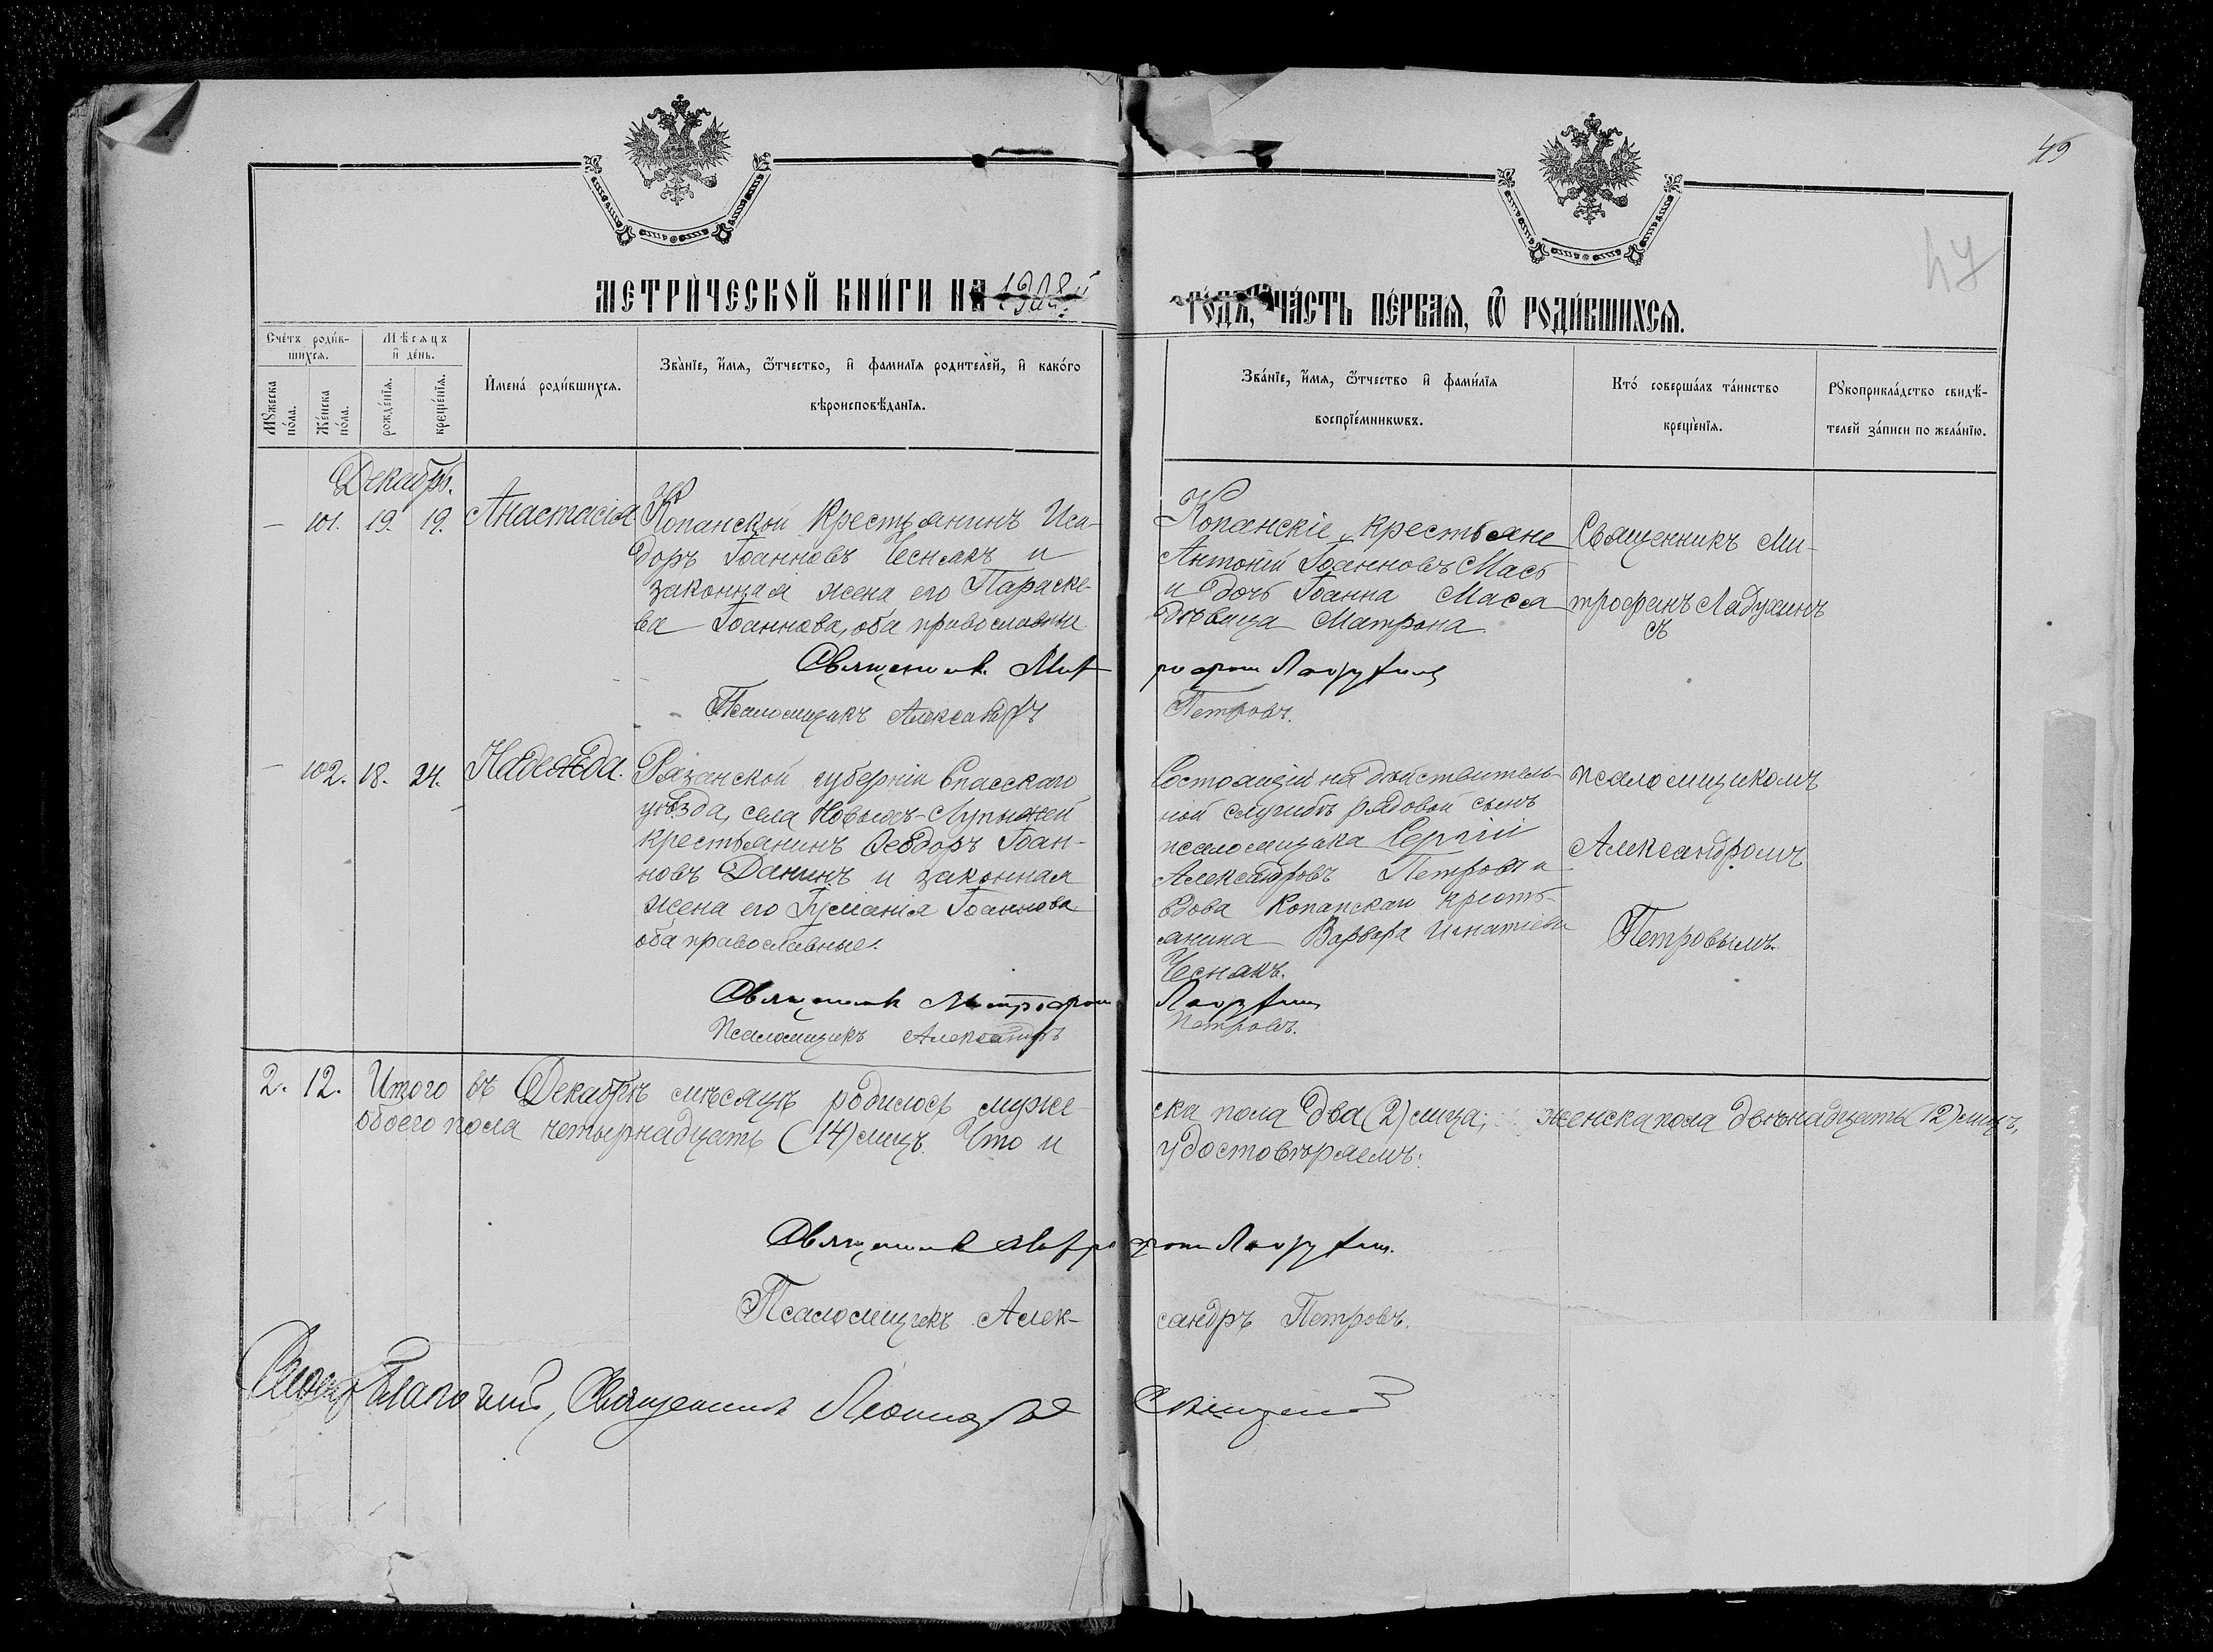 49
47
МЕТРИ́ЧЕСКОЙ КНИ́ГИ НА 1918й
ГО́ДЪ, ЧА́СТЬ ПЕ́РВАЯ, Ѿ РОДИ́ВШИХСЯ.
Сче́тъ роди́в-
шихся.
Мѣсяцъ
и де́нь.
Имена́ роди́вшихся.
Зва́нїе, и́мя, ѻ́тчество, и фамилїя родителе́й, и како́го
вѣроисповѣ́данїя.
Мꙋжеска по́ла.
Же́нска по́ла.
рожде́нїя.
креще́нїя.
Зва́нїе, и́мя, ѻ́тчество и фами́лїя
воспрїе́мникѡвъ.
Кто́ соверша́лъ та́инство
креще́нїя.
Рꙋкоприкла́дство свидѣ́-
телей за́писи по жела́нїю.
Декабрь.
— 101. 19. 19. Анастасія
Копанской крестьянинъ Иси-
доръ Іоанновъ Чеснакъ и
законная жена его Параске-
ва Іоаннова, оба православные
Копанскіе крестьяне
Антоній Іоанновъ Мась
и дочь Іоанна Мася
дѣвица Матрона
Священникъ Ми-
трофанъ Ладухинъ
Священник Мит
рофан Ладухинъ
Псаломщикъ Александръ
Петровъ.
— 102. 18. 24. Надежда.
Рязанской губерніи Спасскаго
уѣзда, села Новыхъ-
крестьянинъ Ѳеодоръ Іоан-
новъ Данинъ и законная
жена его Іоаннова
оба православные.
Состоящій на дѣйствитель-
ной службѣ рядовой сынъ
псаломщика Сергій
Александровъ Петровъ и
вдова Копанскаго кресть-
янина Варвара Игнатіева
Чеснакъ.
псаломщикомъ
Александромъ
Петровымъ.
Священник Митрофан
Ладухин
Псаломщикъ Александръ
Петровъ.
2. 12. Итого въ Декабрѣ мѣсяцѣ родилось муже-
ска пола два (2) лица; женска пола двѣнадцать (12) лицъ,
обоего пола четырнадцать (14) лицъ. Что и
удостовѣряемъ:
Священник Митро
фан Ладухин.
Псаломщикъ Алек-
сандръ Петровъ.
Благочинный, Священникъ Леонид